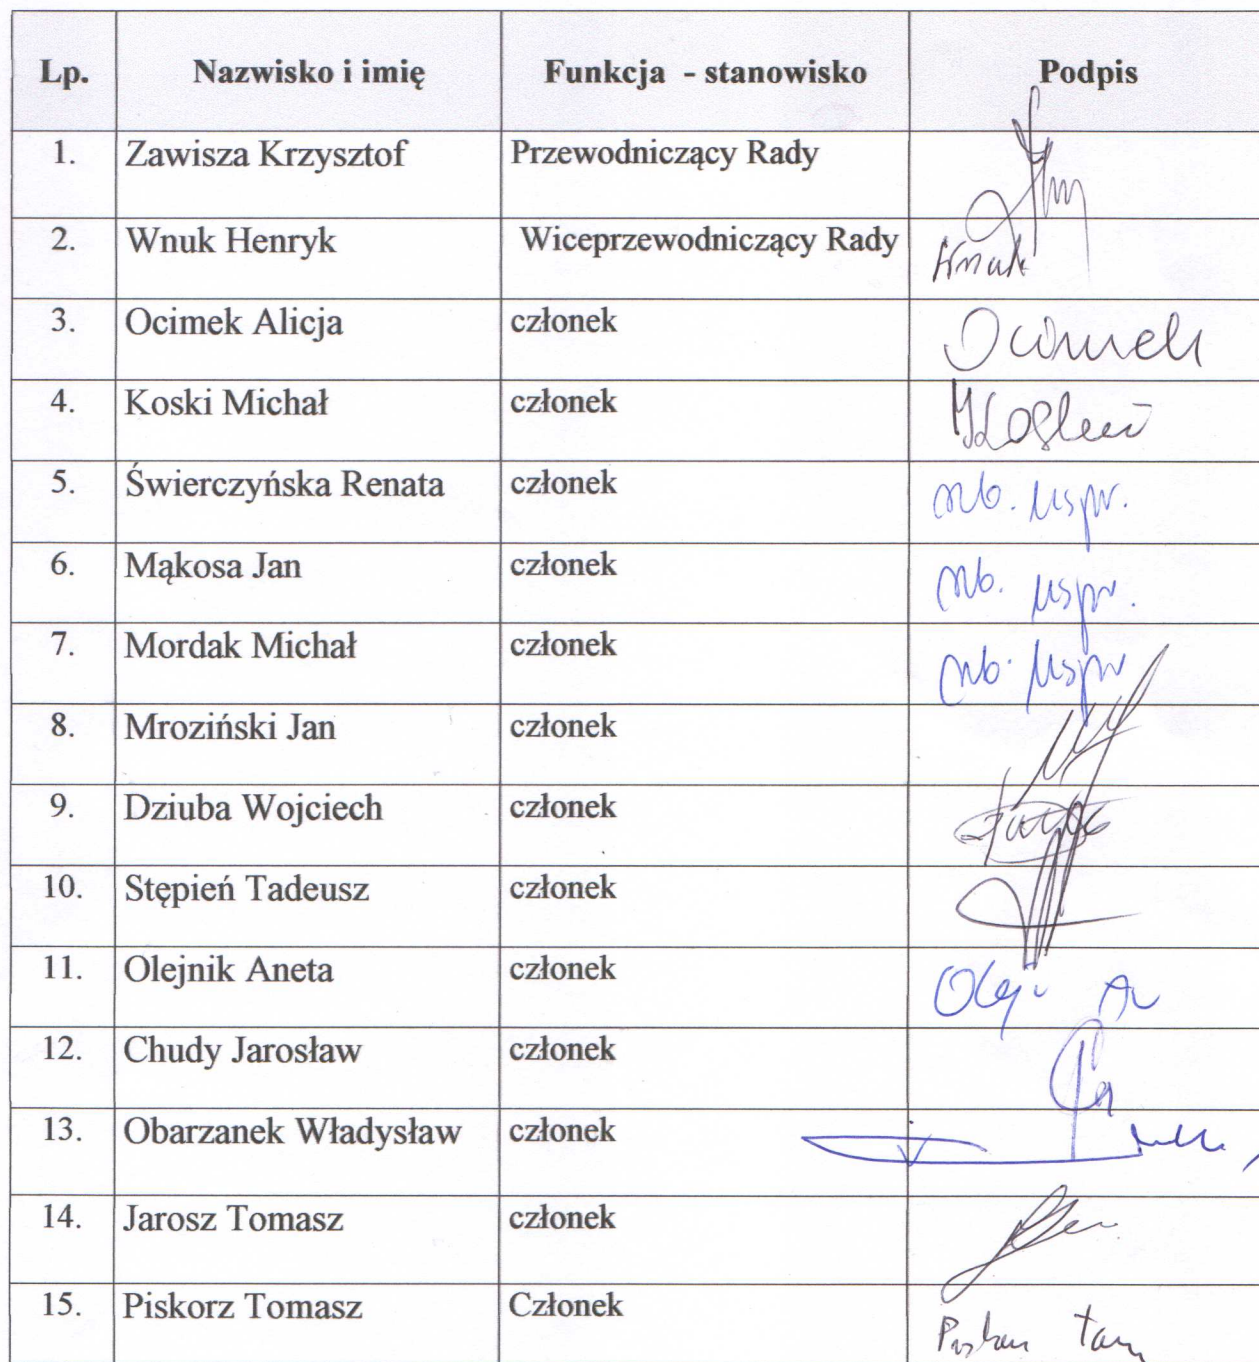 Lp. Nazwisko i imię Funkcja - stanowisko Podpis
1. Zawisza Krzysztof Przewodniczący Rady
2. Wnuk Henryk Wiceprzewodniczący Rady Wnuk
3. Ocimek Alicja członek Ocimek
4. Koski Michał członek
5. Świerczyńska Renata członek nb. uspr.
6. Mąkosa Jan członek nb. uspr.
7. Mordak Michał członek nb. uspr
8. Mroziński Jan członek
9. Dziuba Wojciech członek
10. Stępień Tadeusz członek
11. Olejnik Aneta członek
12. Chudy Jarosław członek
13. Obarzanek Władysław członek
14. Jarosz Tomasz członek
15. Piskorz Tomasz Członek